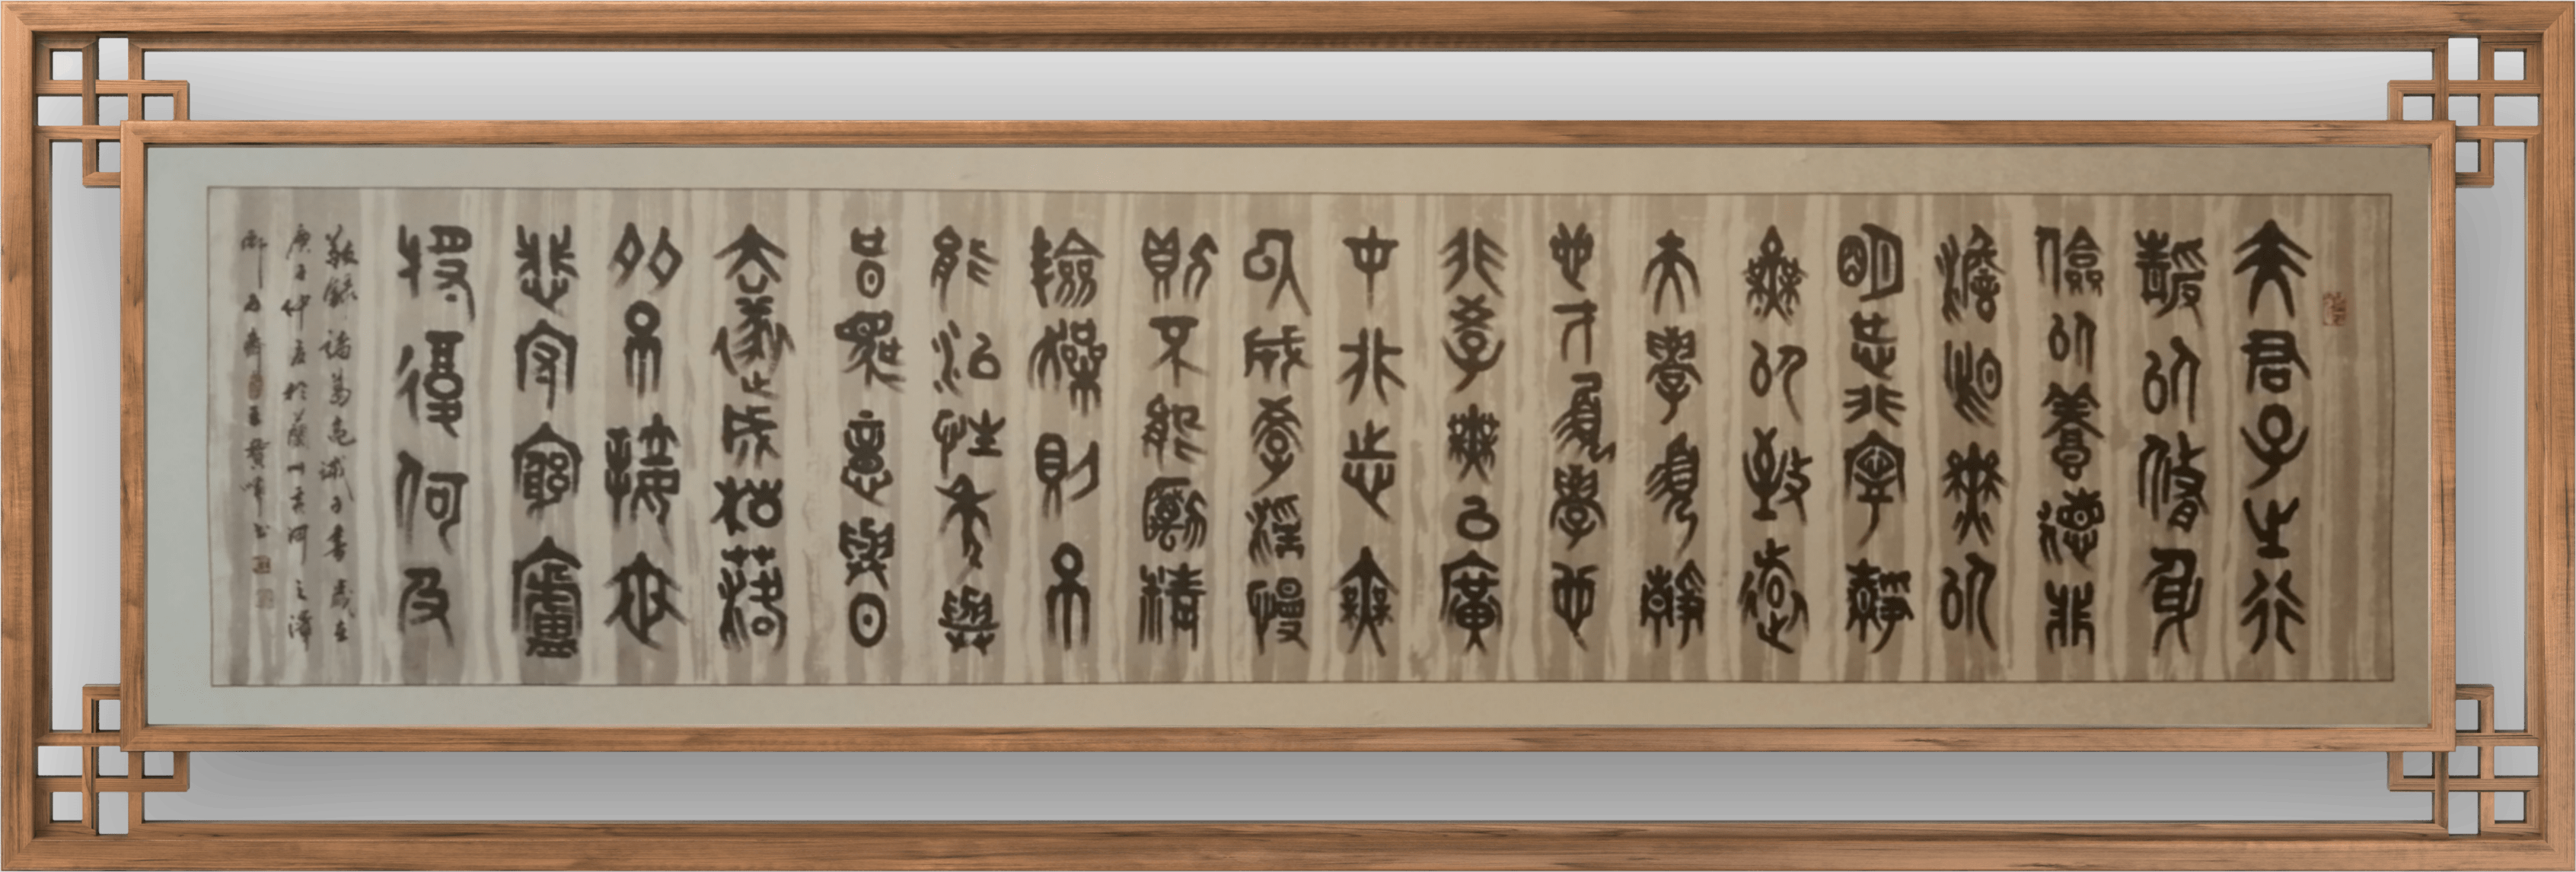 夫君子之行
靜以脩身
儉以養德非
澹泊無以
明志非寧靜
無以致遠
夫學須靜
也才須學也
非學無以廣
才非志無
以成學淫慢
則不能勵精
險躁則不
能治性年與
時馳意與日
去遂成枯落
多不接世
悲守窮廬
將復何及
敬錄諸葛亮誡子書歲在
庚子仲夏於蘭州黃河之濱